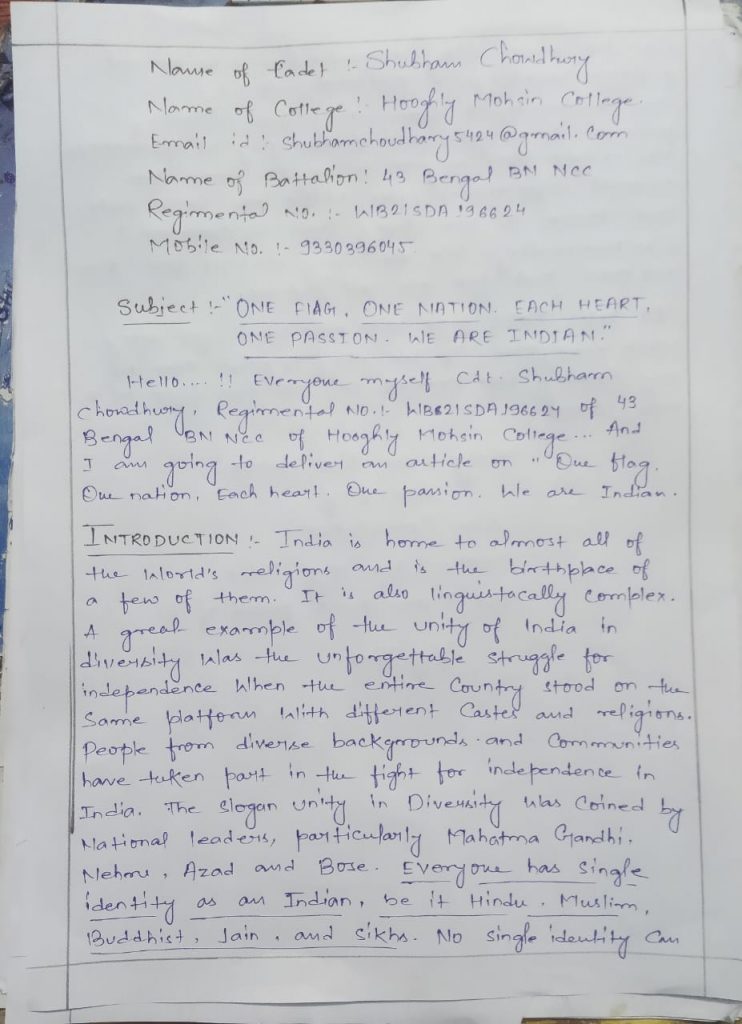 Name of Cadet :- Shubham Chowdhury
Name of College : Hooghly Mohsin College.
Email id : Shubhamchoudhary5424@gmail.com
Name of Battalion : 43 Bengal BN NCC
Regimental No. :- WB21SDA196624
Mobile No. :- 9330396045
Subject :- "ONE FlAG, ONE NATION. EACH HEART,
ONE PASSION. WE ARE INDIAN."
Hello.... !! Everyone myself Cdt. Shubham
Chowdhury, Regimental No. :- WB21SDA196624 of 43
Bengal BN NCC of Hooghly Mohsin College... And
I am going to deliver an article on "One flag.
One nation, Each heart. One passion. We are Indian.
INTRODUCTION :- India is home to almost all of
the World's religions and is the birthplace of
a few of them. It is also linguistacally complex.
A great example of the unity of India in
diversity was the unforgettable struggle for
independence when the entire Country stood on the
Same platform with different Castes and religions.
People from diverse backgrounds and Communities
have taken part in the fight for independence in
India. The Slogan unity in Diversity was Coined by
National leaders, particularly Mahatma Gandhi.
Nehru, Azad and Bose. Everyone has single
identity as an Indian, be it Hindu. Muslim,
Buddhist, Jain, and Sikhs. No single identity Can